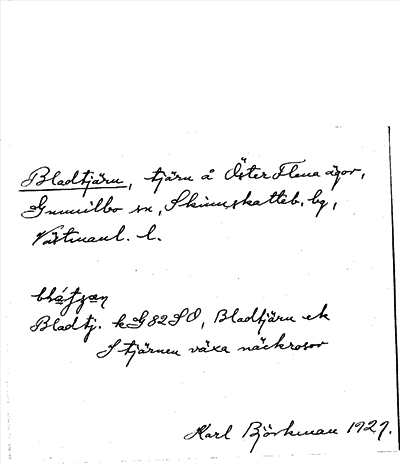 Bladtjärn, tjärn å Öster Flena ägor,
Gunnilbo sn, Skinnskatteb. bg,
Västmanl. l.
Bladtj. k G82SO, Bladtjärn ek
I tjärnen växa näckrosor
Karl Björkman 1927.